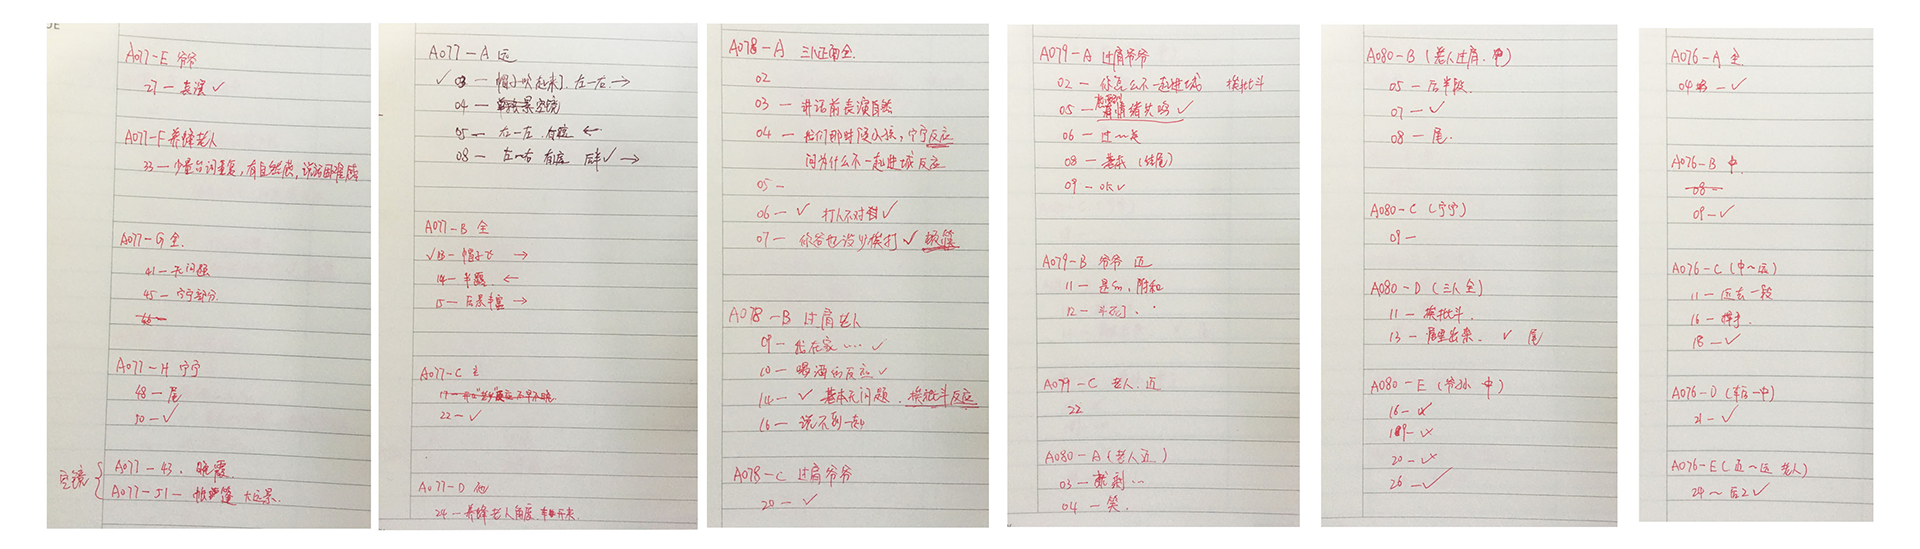 A077-E 爷爷
27 — 表演 ✓
A077-F 养蜂老人
33 — 少量台词重复，有自然感，说话困难感
A077-G 全
41 — 无问题
45 — 宁宁部分
A077-H 宁宁
48 — 尾
50 — ✓
空镜
A077-43. 晚霞
A077-51 — 帐篷 大远景.
A077-A 远
✓ 03 — 帽子吹起来了. 左—右 →
04 — 空镜
05 — 右—左. ←
08 — 左—右 有 ✓ →
A077-B 全
✓13 — 帽子飞 →
14 — ←
15 — 后景 →
A077-C
22 — ✓
A077-D
24 — 养蜂老人角度. 车开来.
A078-A 三人正面全.
02
03 — 讲话前表演自然
04 — 我们那时没小孩，宁宁反应
问为什么不一起进城反应
05 —
06 — ✓ 打人不对 ✓
07 — 你爸也没少挨打 ✓
A078-B 过肩老人
09 — 我在家 …… ✓
10 — 喝酒的反应 ✓
14 — ✓ 基本无问题. 挨批斗反应
16 — 说不到一起
A078-C 过肩爷爷
20 — ✓
A079-A 过肩爷爷
02 — 你怎么不一起进城 挨批斗
05 — 情绪失鸣 ✓
06 — 过一点
08 — 基本 (结尾)
09 — ok ✓
A079-B 爷爷 近
11 — 是的，附和
12 — 斗死了.
A079-C 老人. 近
22
A080-A (老人近)
03 — …
04 — 笑.
A080-B (老人过肩. 中)
05 — 后半段
07 — ✓
08 — 尾.
A080-C (宁宁)
09 —
A080-D (三人全)
11 — 挨批斗.
13 — 出来. ✓ 尾
A080-E (爷孙 中)
16 — ✓
19 — ✓
20 — ✓
26 — ✓
A076-A 全
04 — ✓
A076-B 中
08 —
09 — ✓
A076-C (中～远)
11 — 远去一段
16 — 挥手.
18 — ✓
A076-D (车后—中)
21 — ✓
A076-E (近～远 老人)
24 ～ 后2 ✓